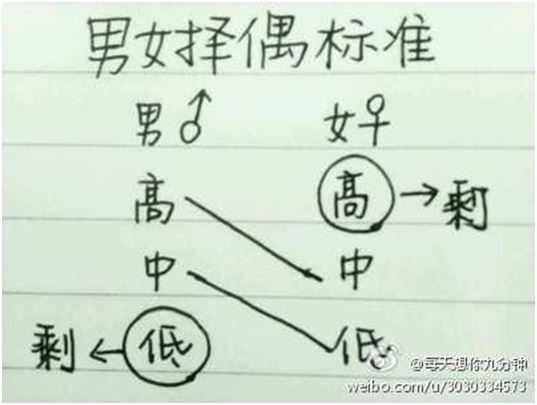 男女择偶标准
男♂ 女♀
高 高→剩
中 中
剩←低 低
@每天想你九分钟
weibo.com/u/3030334573